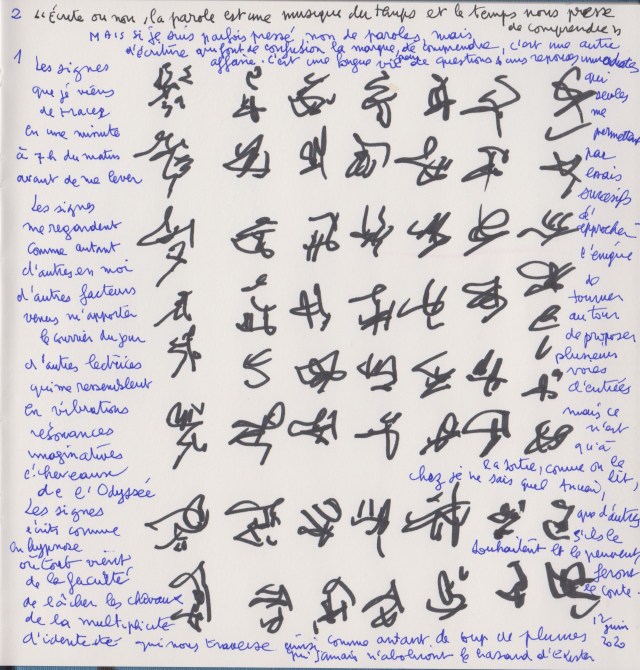 2 "Écrite ou non, la parole est une musique du temps et le temps nous presse
de comprendre"
MAIS si je suis parfois pressé, non de paroles, mais
d'écriture qui font de confusion la marque, de comprendre, c'est une autre
affaire. C'est une longue vie de questions sans réponses immédiates
1
Les signes
que je viens
de tracer
En une minute
à 7h du matin
avant de me lever
Les signes
me regardent
comme autant
d'autres en moi
d'autres facteurs
venus m'apporter
le courrier du jour
d'autres lectrices
qui me ressemblent
En vibrations
résonances
imaginatives
de l'Odyssée
Les signes
écrits comme
en hypnose
où tout vient
de la faculté
de lâcher les chevaux
de la multiplicité
d'identité qui nous traverse ainsi comme autant de coup de plumes
qui jamais n'aboliront le hasard d'exister
qui
seules
me
permettent
par
essais
successifs
d'
approcher
l'énigme
de
tourner
autour
de proposer
plusieurs
voies
d'entrées
mais ce
n'est
qu'à
la sortie, comme on le lit,
chez je ne sais quel
que d'autres
s'ils le
souhaitent et le peuvent,
feront
le conte.
12
juin
2020